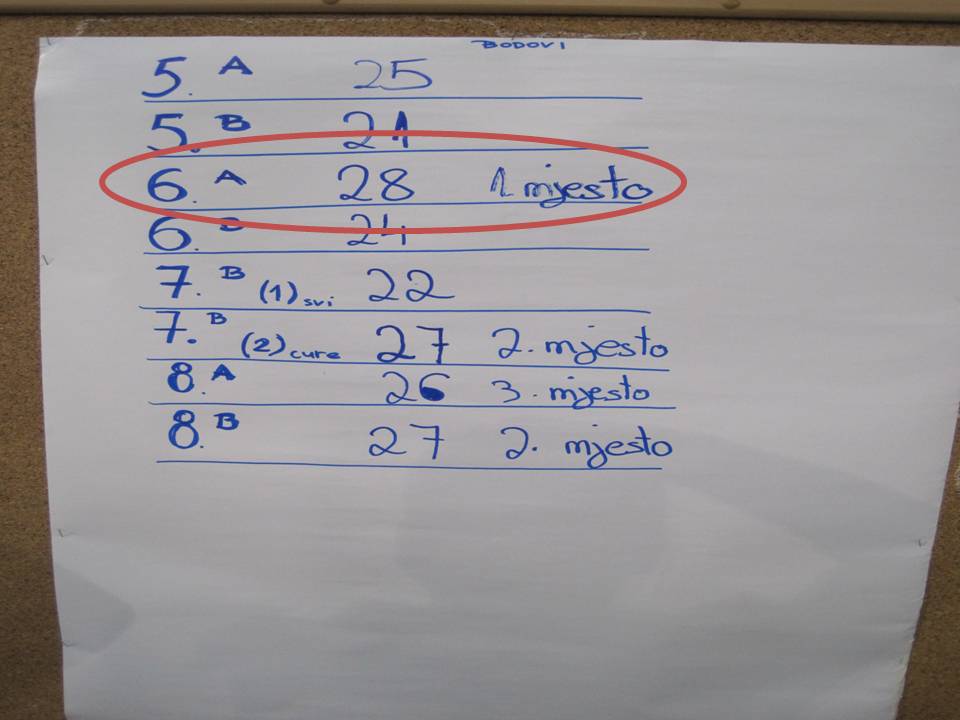 BODOVI
5. A 25
5. B 21
6. A 28 1 mjesto
6. B 24
7. B (1) svi 22
7. B (2) cure 27 2. mjesto
8. A 26 3. mjesto
8. B 27 2. mjesto